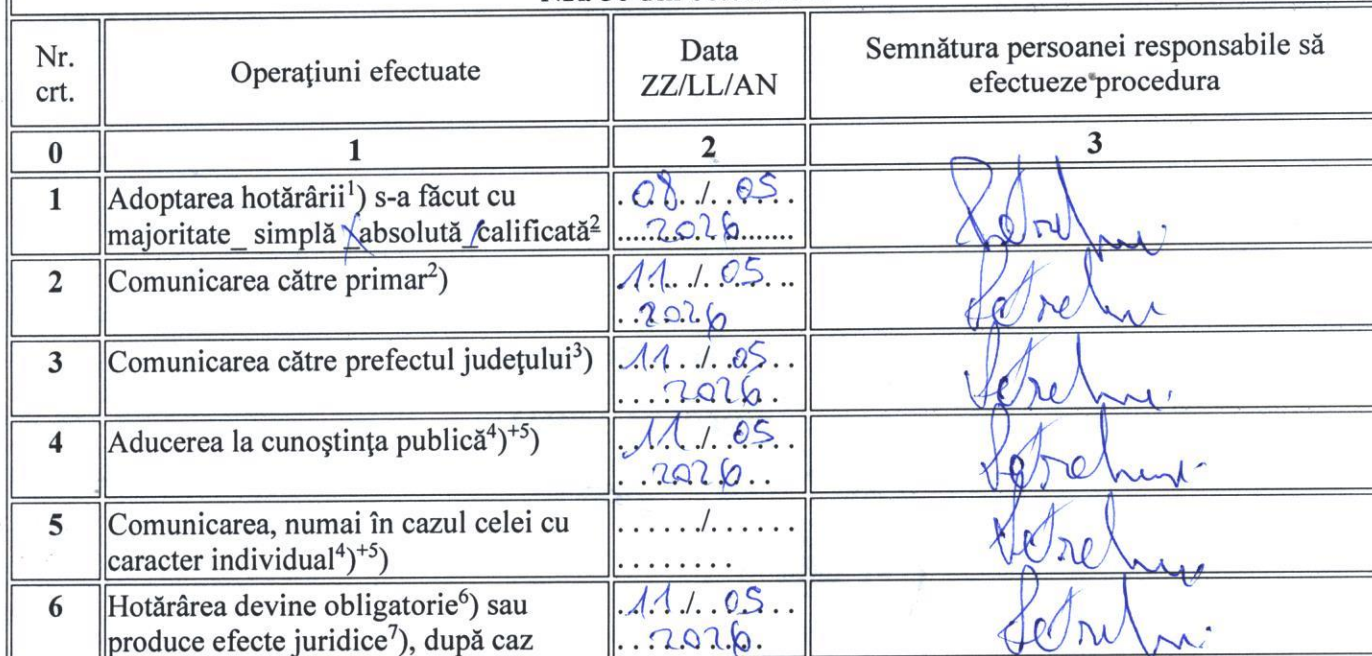 Nr.
crt.
Operaţiuni efectuate
Data
ZZ/LL/AN
Semnătura persoanei responsabile să
efectueze procedura
0 1 2 3
1 Adoptarea hotărârii¹) s-a făcut cu
majoritate_ simplă _absolută _calificată²
08./.05.
2026
2 Comunicarea către primar²)
11./.05.
2026
3 Comunicarea către prefectul judeţului³)
11./.05.
2026.
4 Aducerea la cunoştinţa publică⁴)⁺⁵)
11./.05.
2026
5 Comunicarea, numai în cazul celei cu
caracter individual⁴)⁺⁵)
....../......
........
6 Hotărârea devine obligatorie⁶) sau
produce efecte juridice⁷), după caz
11./.05.
2026.